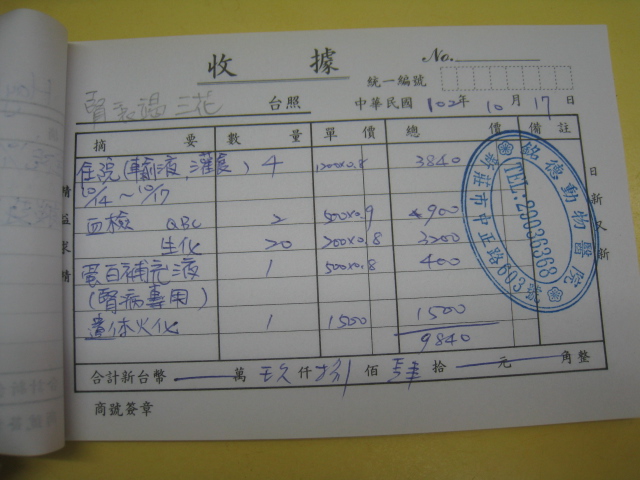 收 據
No.
統一編號
腎衰竭 三花 台照 中華民國 102年 10月 17日
摘 要 數 量 單 價 總 價 備 註
住院(輸液,灌食) 4 1200x0.8 3840
10/14~10/17
血檢 QBC 2 500x0.9 900
生化 20 200x0.8 3200
蛋白補充液 1 500x0.8 400
(腎病專用)
遺体火化 1 1500 1500
9840
合計新台幣 萬 玖 仟 捌 佰 肆 拾 元 角 整
商號簽章
銘德動物醫院
TEL:29036368
新莊市中正路603號
日新又新
精益求精